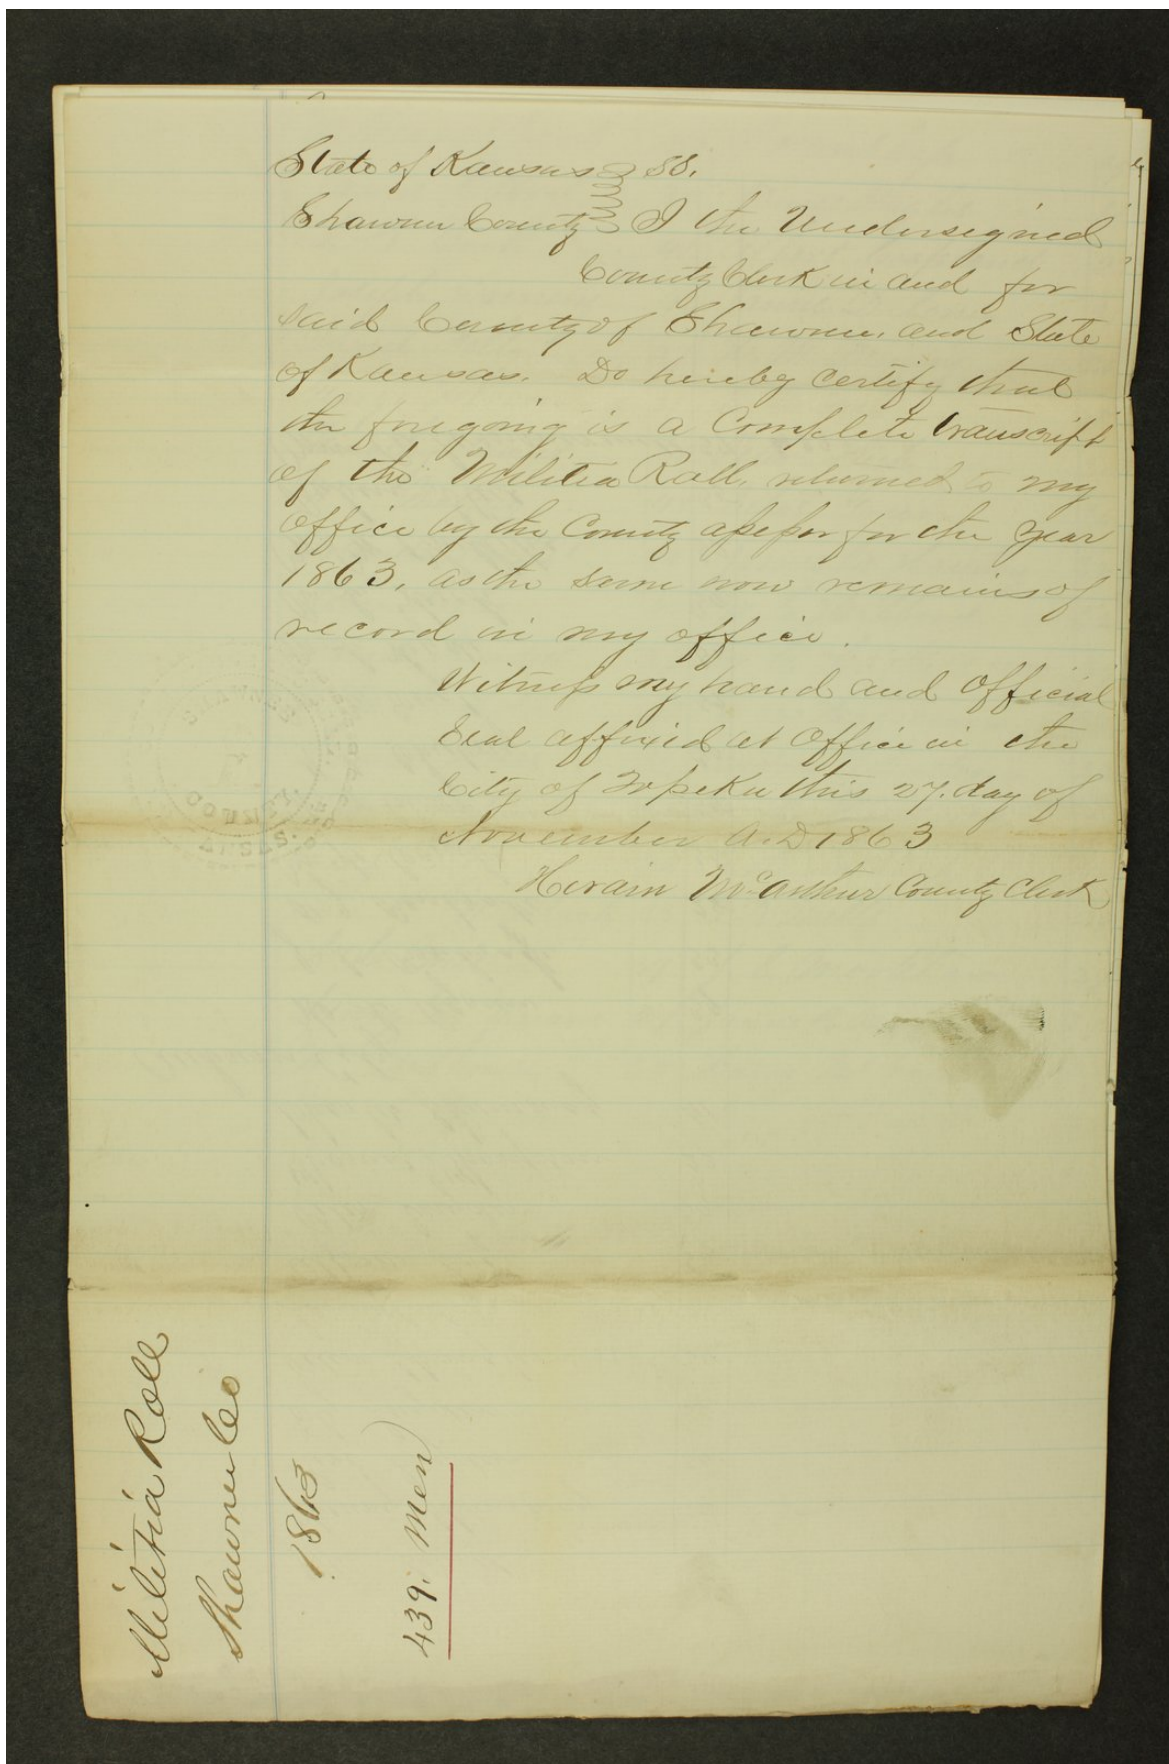 State of Kansas } SS.
Shawnee County } I the Undersigned
County Clerk in and for
said County of Shawnee, and State
of Kansas. Do hereby Certify that
the foregoing is a Complete transcript
of the Militia Roll, returned to my
office by the County assessor for the year
1863, as the same now remains of
record in my office.
Witness my hand and Official
Seal affixed at Office in the
City of Topeka this 27. day of
November A.D 1863
Hiram McArthur County Clerk
Militia Roll
Shawnee Co
1863
439. Men